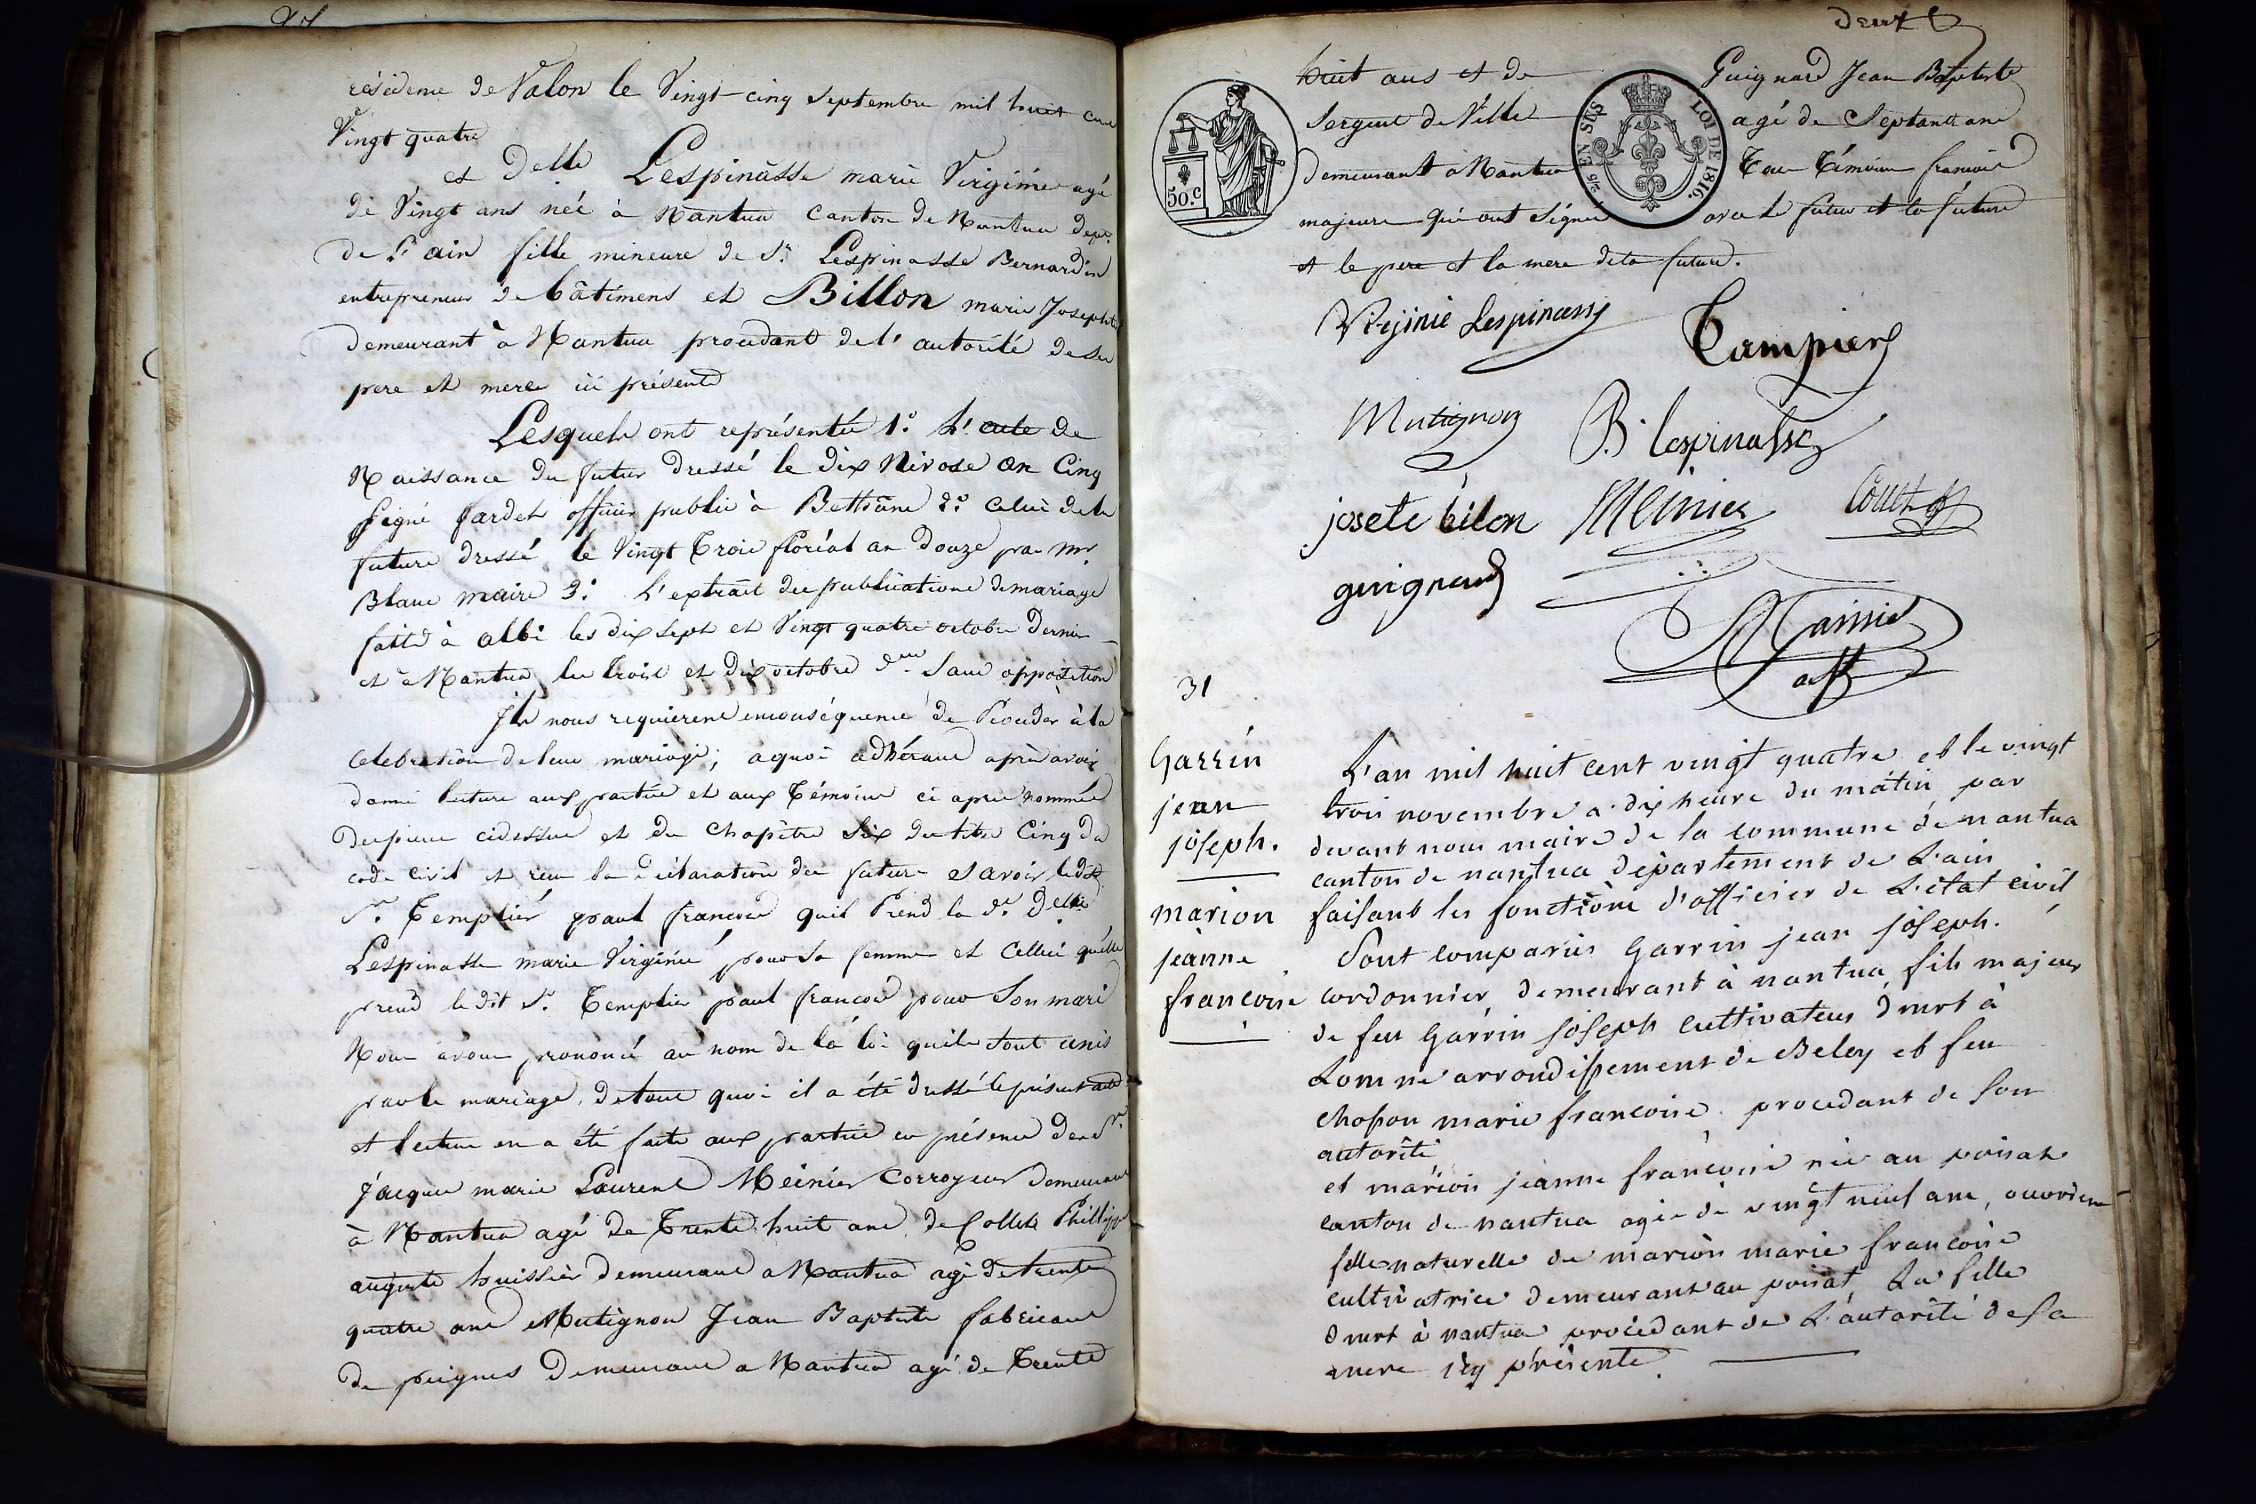 résidence de Valon le Vingt cinq Septembre mil huit cent
Vingt quatre
et Delle Lespinasse marie Virginie agé
de Vingt ans née à Nantua canton de Nantua dept
de l'ain fille mineure de Sr Lespinasse Bernardin
entrepreneur de bâtimens et Billon marie Josephte
demeurant à Nantua procedant de l'autorité de ses
pere et mere ici présents
Lesquels ont représenté 1º L'acte de
Naissance du futur dressé le dix Nivose an Cinq
signé officier public à 2º celui de la
future dressé le Vingt Trois floréal an douze par Mr
Blanc maire 3º L'extrait des publications de mariage
faits à albi les dix sept et Vingt quatre octobre dernier
et à Nantua les trois et dix octobre der Sans opposition
Ils nous requierent en conséquence de Proceder à la
Celebration de leur mariage; a quoi adhérant après avoir
donné lecture aux parties et aux Témoins ci apres nommés
des pieces cidessus et du Chapitre Six du titre Cinq du
code civil et reçu la déclaration des futurs Savoir ledit
Sr Templier paul francois quil Prend la de Delle
Lespinasse marie Virginie pour Sa femme et Celleci qu'elle
prend le dit Sr Templier paul francois pour Son mari
Nous avons prononcé au nom de la loi quils Sont unis
par le mariage, de tout quoi il a été dressé le présent acte
et lecture en a été faite aux parties en présence de Sr
Jacques marie Laurent Meinier Corroyeur demeurant
à Nantua agé de Trente huit ans, de Collet Philippe
auguste huissier demeurant a Nantua agé de trente
quatre ans Mutignon Jean Baptiste fabricant
de peignes Demeurant a Nantua agé de Trente
deux
huit ans et de Guignard Jean Baptiste
Sergent de Ville agé de Septante ans
Demeurant à Nantua Tous Témoins francais
majeurs qui ont Signé avec le futur et la future
et le pere et la mere de la future.
50.c
EN SUS
LOI DE 1816.
Virjinie Lespinasse
Tampier
Mutignon
B. Lespinasse
josete bilon
Meinier
Collet
guignard
31
Garrin
jean
joseph.
marion
jeanne
francoise
L'an mil huit cent vingt quatre et le vingt
trois novembre a dix heure du matin par
devant nous maire de la commune de nantua
canton de nantua département de L'ain
faisant les fonctions d'officier de L'état civil
Sont comparus Garrin jean joseph.
cordonnier demeurant à nantua, fils majeur
de feu Garrin joseph cultivateur dmrt à
Lomne arrondissement de Beley et feu
chapon marie francoise procedant de son
autorité
et marion jeanne françoise née au poisat
canton de nantua agée de vingt neuf ans, ouvriere
fille naturelle de marion marie francoise
cultivatrice demeurant au poisat La fille
dmrt à nantua procedant de L'autorité de Sa
mere icy présente